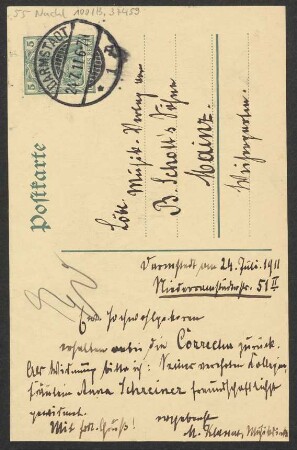 55 Nachl 100/B, 37459
5
DARMSTADT
24.7.11.6-7N
* 1
Postkarte
Löbl. Musik-Verlag von
B. Schott's Söhne
Mainz
Weihergarten.
Darmstadt am 24. Juli. 1911
Niederramstädterstr. 51 II
Euer Hochwohlgeboren
erhalten anbei die Correctur zurück.
Als Widmung bitte ich: Seiner verehrten Kollegin
Fräulein Anna Schreiner freundschaftlichst
gewidmet.
Mit Gruß! ergebenst